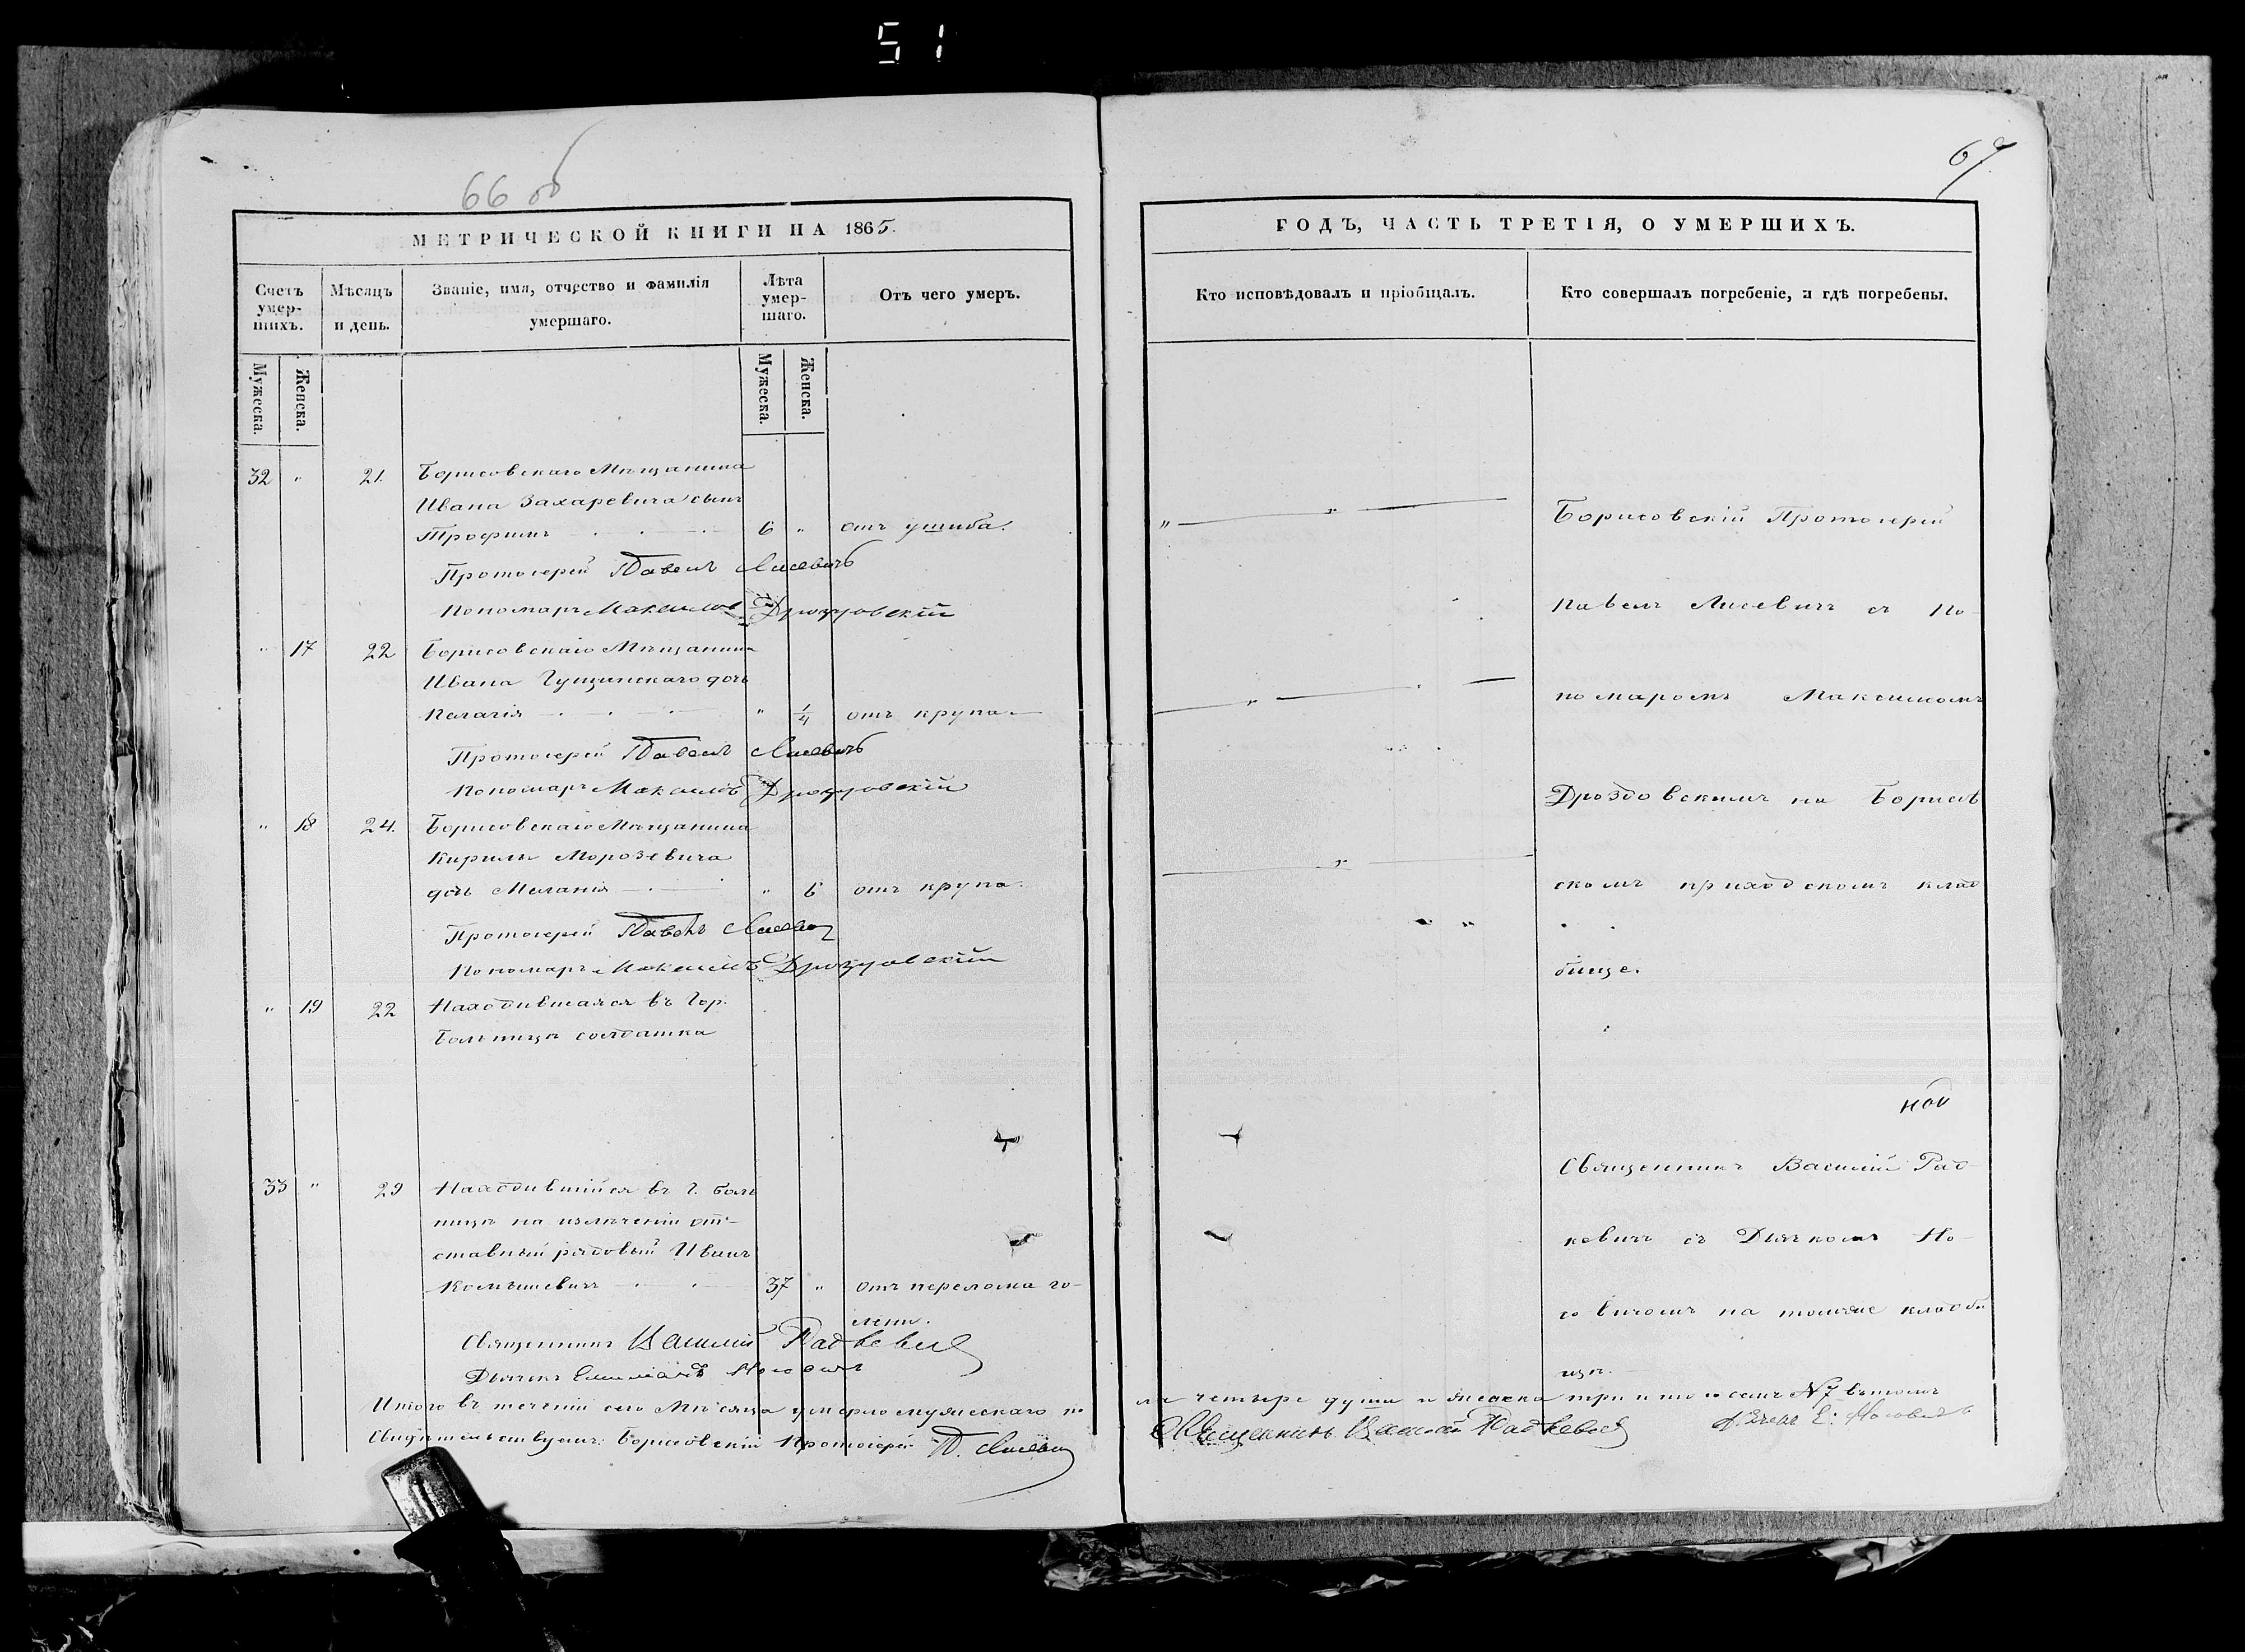 51
66 об
МЕТРИЧЕСКОЙ КНИГИ НА 1865.
Счетъ умер-шихъ.
Мѣсяцъ и день.
Званіе, имя, отчество и фамилія умершаго.
Лѣта умер-шаго.
Отъ чего умеръ.
Мужеска.
Женска.
Мужеска.
Женска.
32 " 21. Борисовскаго Мѣщанина
Ивана Захаревича сынъ
Трофимъ 6 " отъ ушиба.
Протоіерей Павелъ Лисевичъ
Пономарь Максимъ Дроздовскій
" 17 22 Борисовскаго Мѣщанина
Ивана Гущинскаго дочь
Пелагія " 1/4 отъ крупа
Протоіерей Павелъ Лисевичъ
Пономарь Максимъ Дроздовскій
" 18 24. Борисовскаго Мѣщанина
Кирилы Морозевича
дочь Меланія " 6 отъ крупа.
Протоіерей Павелъ Лисевич
Пономарь Максимъ Дроздовскій
" 19 22 Находившаяся въ Гор.
Больницѣ солдатка
33 " 29 Находившійся въ Г. боль
ницѣ на излеченіи от-
ставный рядовый Иванъ
37 " отъ перелома го-
лени.
Священникъ Василій Радкевич
Дьячекъ Носовичъ
Итого въ теченіи сего Мѣсяца умерло мужескаго по
Свидѣтельствуемъ: Борисовскій Протоіерей П. Лисевич
67
ГОДЪ, ЧАСТЬ ТРЕТІЯ, О УМЕРШИХЪ.
Кто исповѣдовалъ и пріобщалъ.
Кто совершалъ погребеніе, и гдѣ погребены.
Борисовскій Протоіерей
Павелъ Лисевичъ съ По-
номаромъ Максимомъ
Дроздовскимъ на Борисов
скомъ приходскомъ клад
бище.
ной
Священникъ Василій Рад-
кевичъ съ Дьячкомъ Но-
совичомъ на томже кладби
щѣ.
ла четыре души и женска три
Священникъ Василій Радкевич
Дьячекъ Е: Носовичъ